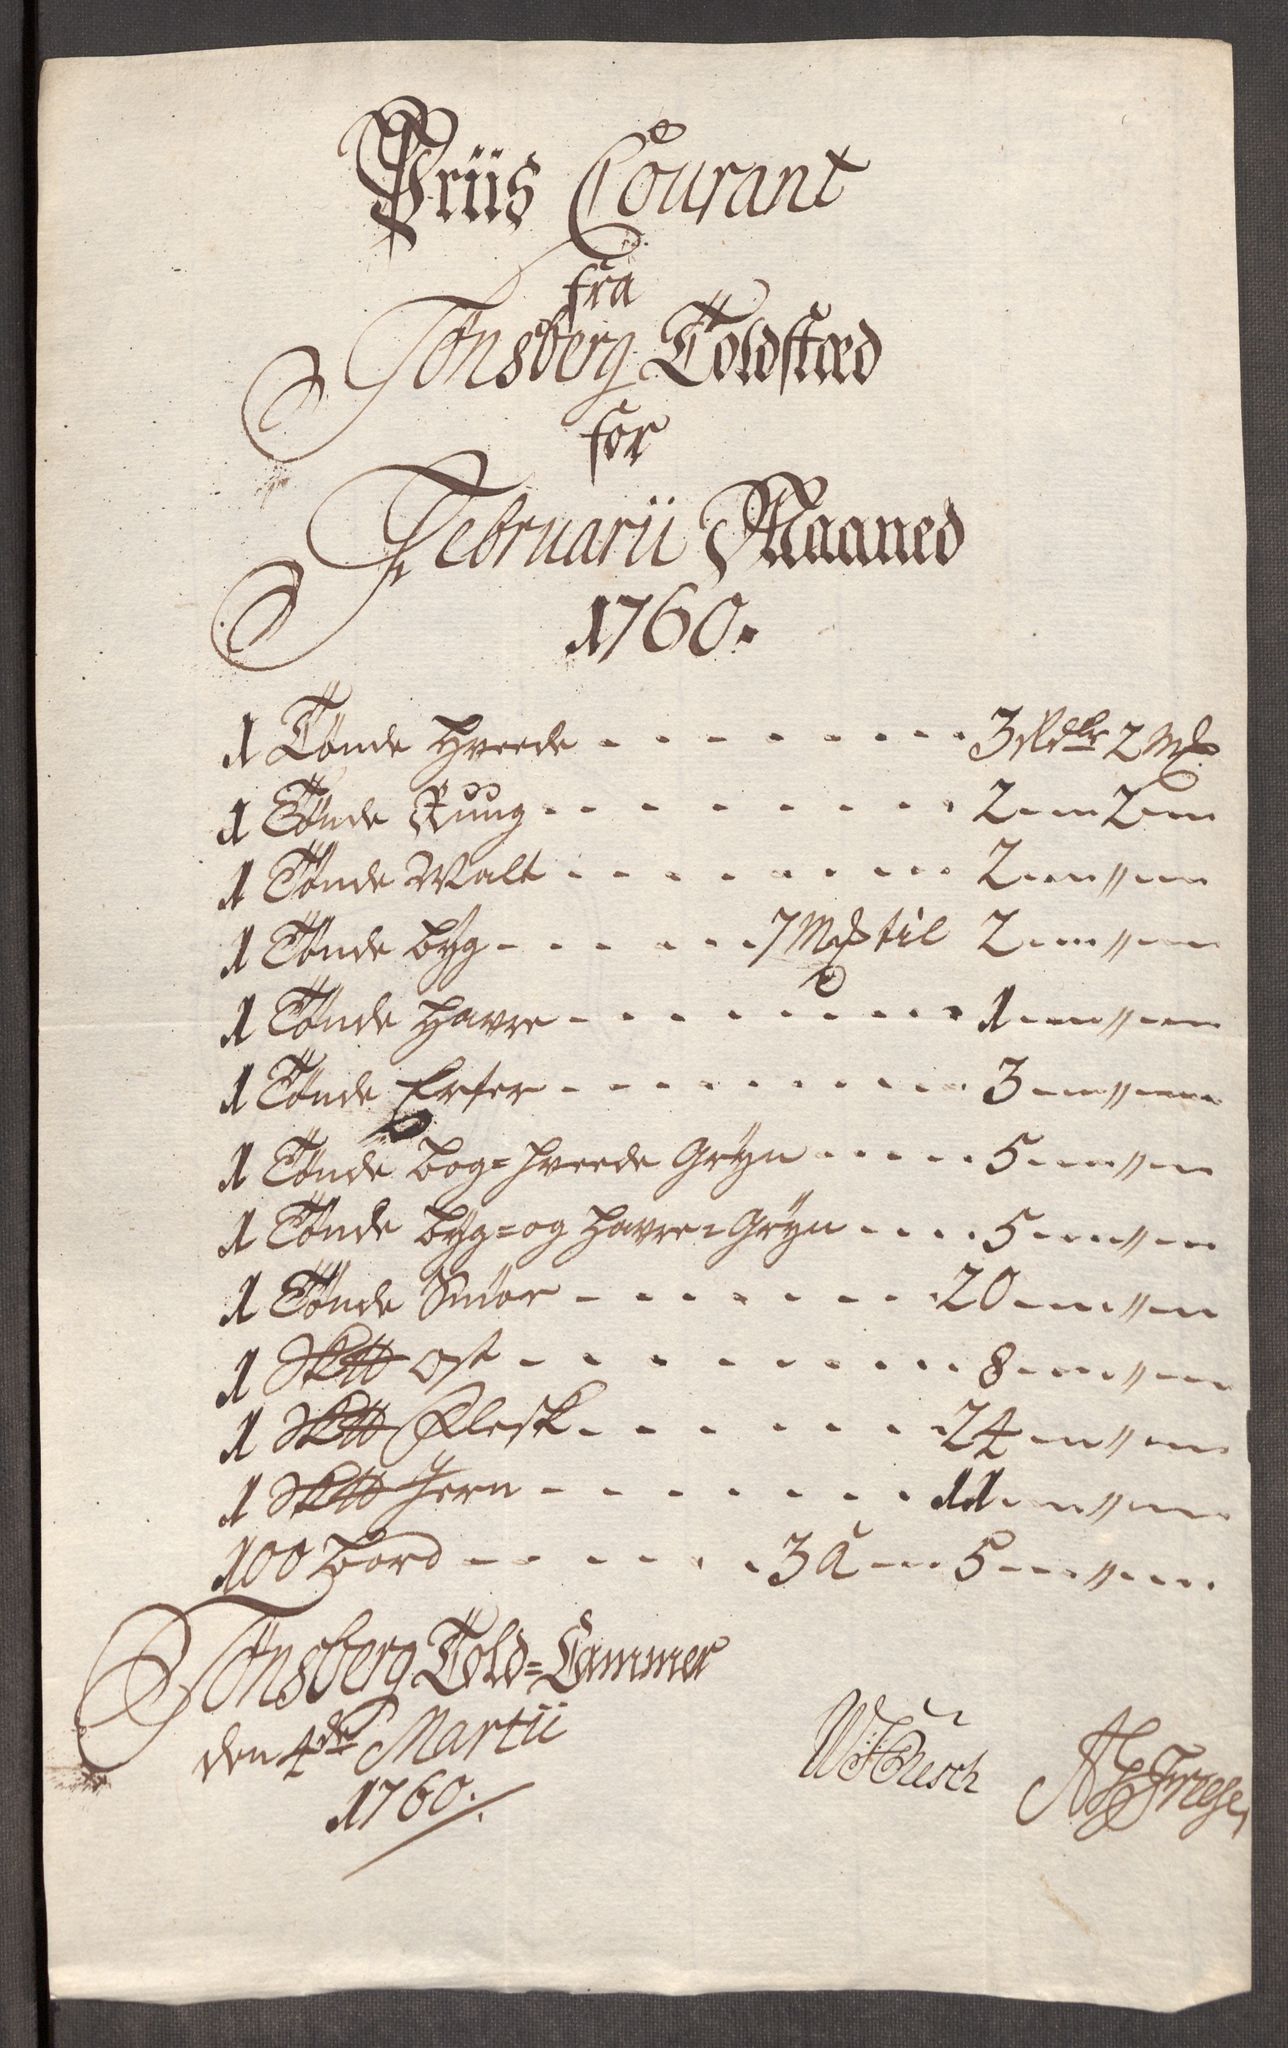 Priis Courant
fra
Tønsberg Toldstæd
for
Februarii Maaned
1760.
1 Tønde Hveede - - - - - - - - 3 Rdlr 2 Mk
1 Tønde Ruug - - - - - - - - 2 -"- 2 -"-
1 Tønde Malt - - - - - - - - 2 -"- " -"-
1 Tønde Byg - - - - - 7 Mk til 2 -"- " -"-
1 Tønde Havre - - - - - - - - 1 -"- " -"-
1 Tønde Erter - - - - - - - - 3 -"- " -"-
1 Tønde Bog=Hveede Gryn - - - - - 5 -"- " -"-
1 Tønde Byg=og Havre=Gryn - - - - 5 -"- " -"-
1 Tønde Smør - - - - - - - 20 -"- " -"-
1 Sk℔ Ost - - - - - - - - 8 -"- " -"-
1 Sk℔ Flesk - - - - - - - 24 -"- " -"-
1 Sk℔ Jern - - - - - - - 11 -"- " -"-
100 Bord - - - - - - 3 a -"- 5 -"- " -"-
Tønsberg Told=Cammer
den 4de Martii
1760.